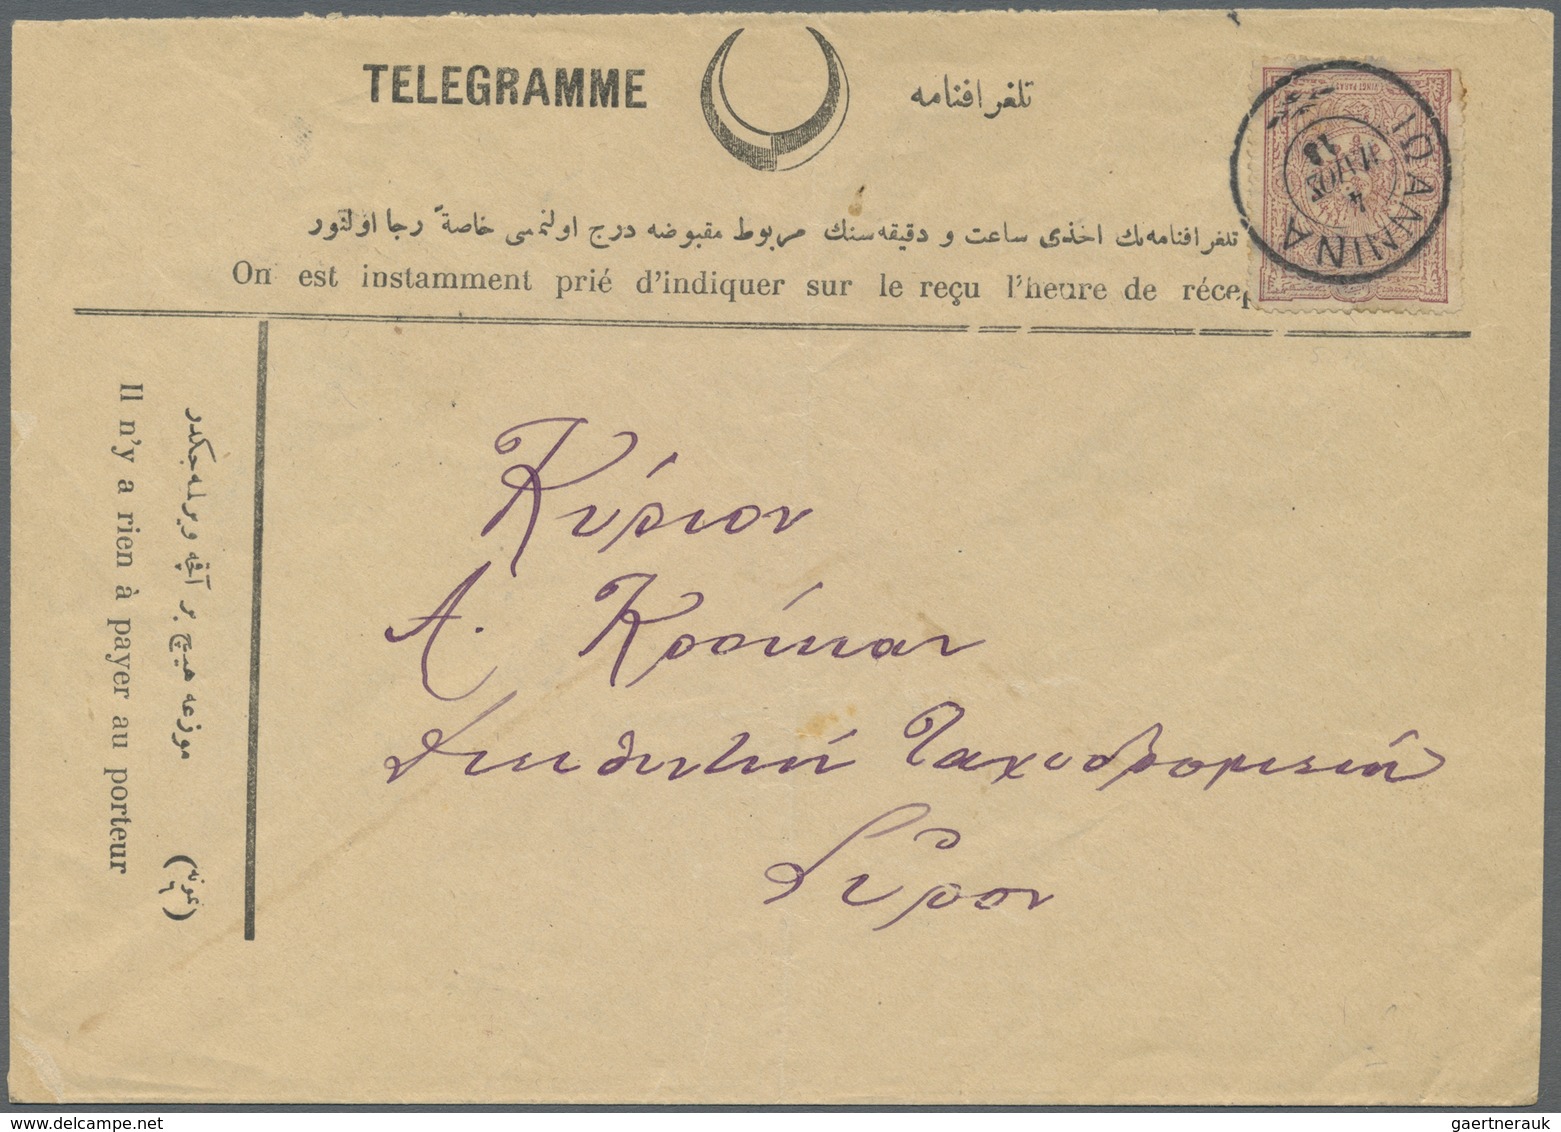 TELEGRAMME
تلغرافنامه
تلغرافنامه‌نك اخذی ساعت و دقیقه‌سنك مربوط مقبوضه درج اولنمسی خاصةً رجا اولنور
On est instamment prié d'indiquer sur le reçu l'heure de récep
موزعه هیچ بر آقچه ویرلمه‌جكدر
Il n'y a rien à payer au porteur
VINGT PARAS
IOANNINA
4
18
Κύριον
Α.
Διευθυντήν Ταχυδρομικόν
Σύρον
gaertnerauk
www.delcampe.net